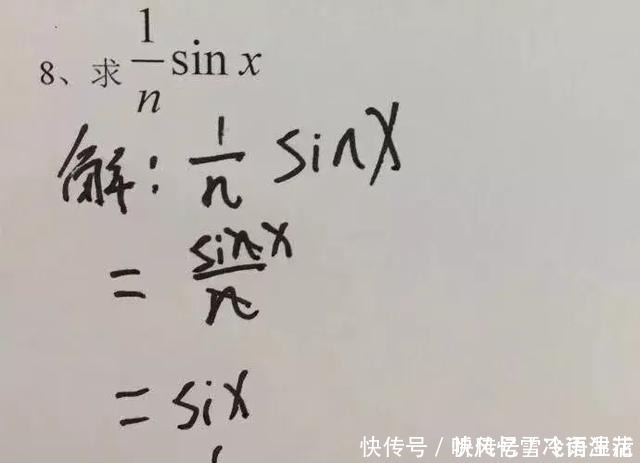 8、求 1/n sin x
解: 1/n sinx
= sinx/n
= six
快传号/